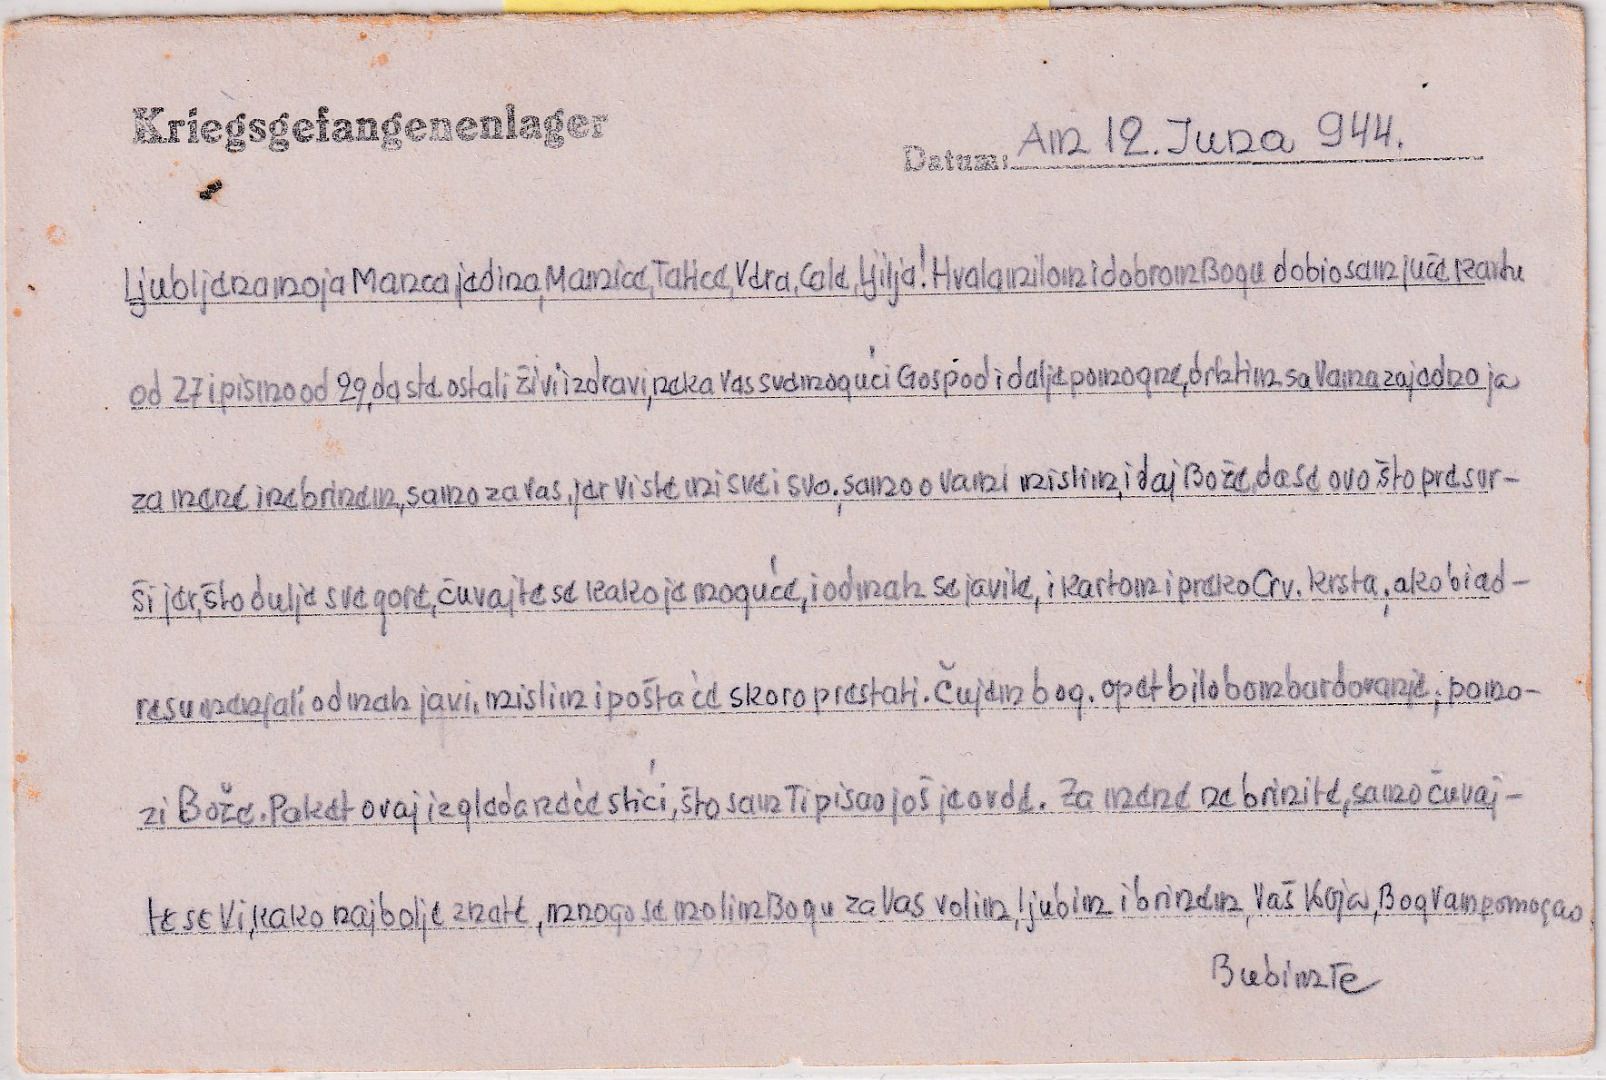 Kriegsgefangenenlager
Datum: Am 12. Juna 944.
Ljubljena moja Manca jedina, Mamice, Tatice, Vera, Cale, Ljilja! Hvala milom i dobrom Bogu dobio sam juče kartu
od 27 i pismo od 29, da ste ostali živi i zdravi, neka Vas svemogući Gospod i dalje pomogne, drhtim sa Vama zajedno ja
za mene i ne brinem, samo za vas, jer Vi ste mi sve i svo, samo o Vami mislim, i daj Bože, da se ovo što pre svr-
ši jer, što dulje sve gore, čuvajte se kako je moguće, i odmah se javite, i kartom i preko Crv. krsta, ako bi ad-
resu menjali odmah javi, mislim i pošta će skoro prestati. Čujem bog. opet bilo bombardovanje, pomo-
zi Bože. Paket ovaj izgleda neće stići, što sam Ti pisao još je ovde. Za mene ne brinite, samo čuvaj-
te se Vi, kako najbolje znate, mnogo se molim Bogu za Vas volim, ljubim i brinem, Vaš Bog Vam pomogao
Bubimte